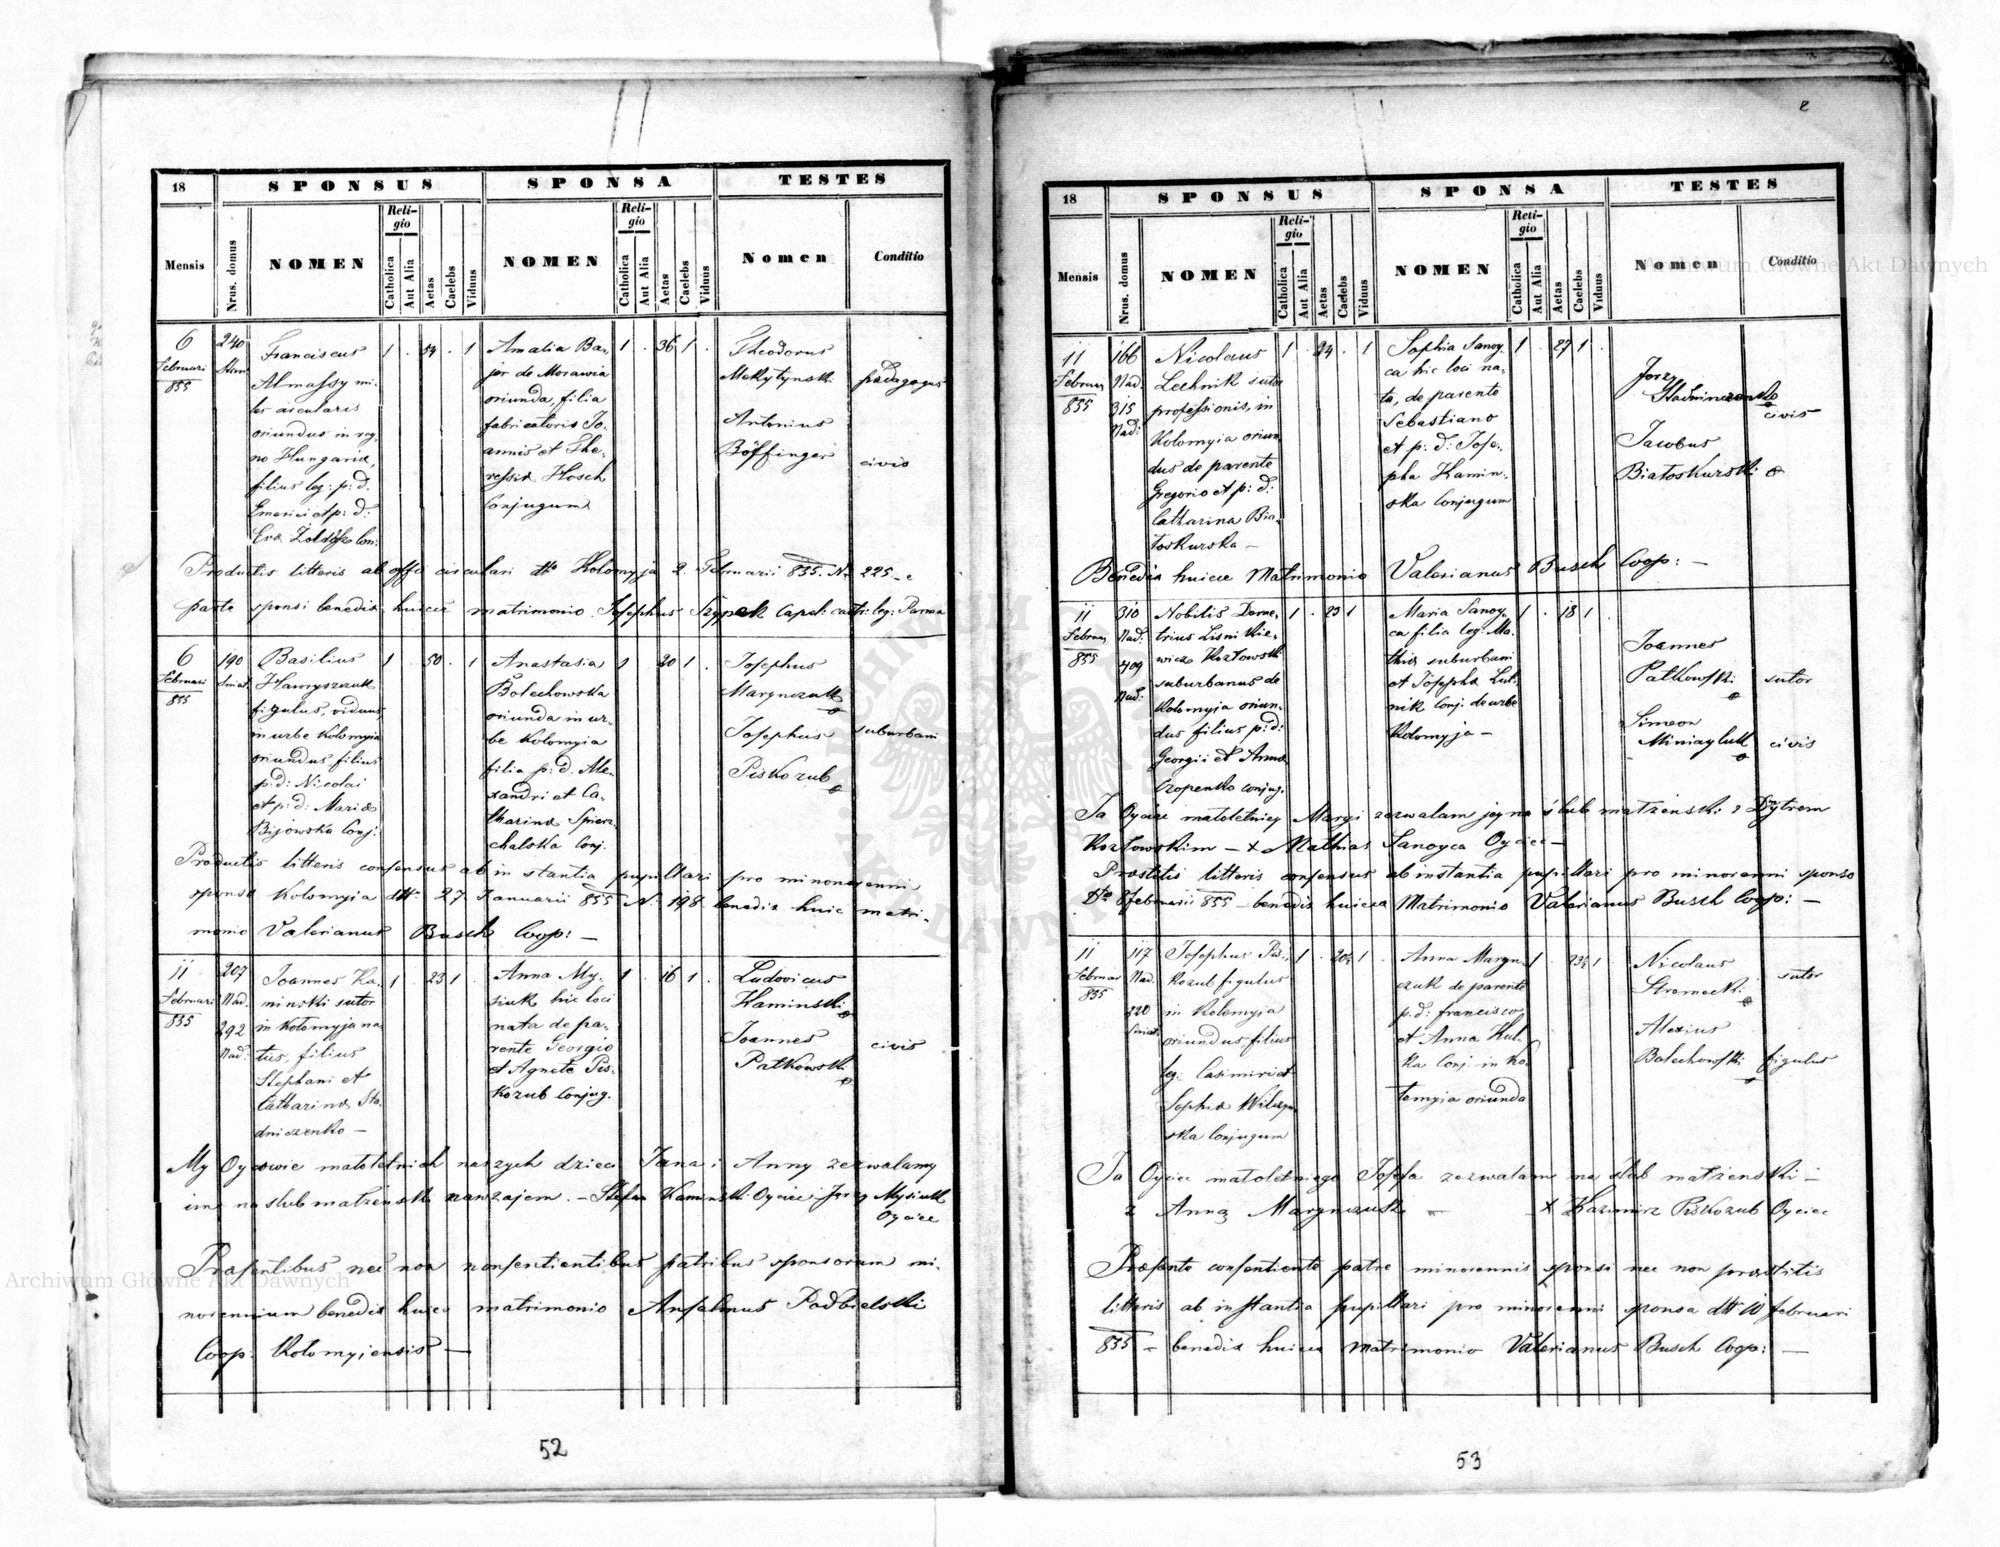 18
SPONSUS
SPONSA
TESTES
Mensis
Nrus. domus
NOMEN
Reli-
gio
Catholica
Aut Alia
Aetas
Caelebs
Viduus
NOMEN
Reli-
gio
Catholica
Aut Alia
Aetas
Caelebs
Viduus
Nomen
Conditio
6
Februari
855
240
Franciscus
Almassy mi-
les circularis
oriundus in reg-
no Hungariæ,
filius leg: p: d:
Emerici et p: d:
Eva
1 . 54 . 1
Amalia Ba-
jer de Morawia
oriunda, filia
fabricatoris Jo-
annis et The-
ressiæ Hosch
Conjugum
1 . 36 1 .
Theodorus
Mekytynski
pædagogus
Antonius
Böffinger
civis
Productis litteris ab offo circulari dtto Kolomyja 2 Februarii 855. No 225 a
parte sponsi benedixi huicce matrimonio Josephus Szypek Capel: castr: leg: Parma
6
Februari
855
190
Sniat.
Basilius
Hawryszczuk
figulus, viduus
in urbe Kolomyia
oriundus filius
p: d: Nicolai
et p: d: Mariæ
Bijowska Conj:
1 . 50 . 1
Anastasia
Bolechowska
oriunda in ur-
be Kolomyia
filia p: d. Ale-
xandri et Ca-
tharinæ Spierz-
chalska Conj.
1 . 20 1 .
Josephus
Marynczuk
Josephus
Piskozub
suburbani
Productis litteris consensus ab instantia pupillari pro minorenni
sponsa Kolomyia dtto 27 Januarii 855 No 198 benedixi huic matri-
monio Valerianus Busch Coop: —
11
Februari
855
207
Nad.
292
Nad:
Joannes Ka-
minski sutor
in Kolomyja na-
tus, filius
Stephani et
Catharinæ Sta-
dniczenko —
1 . 23 1 .
Anna My-
siuk hic loci
nata de pa-
rente Georgio
et Agnete Pis-
kozub Conjug.
1 . 16 1 .
Ludovicus
Kaminski
Joannes
Patkowski
civis
My Oycowie małoletnich naszych dzieci Jana i Anny zezwalamy
im na slub małżeński nawzajem. – Stefan Kaminski Oyciec Jerzy Mysiuk
Oyciec
Præsentibus nec non consentientibus patribus sponsorum mi-
norennium benedixi huicce matrimonio Anselmus Podbielski
Coop. Kolomyiensis —
52
18
SPONSUS
SPONSA
TESTES
Mensis
Nrus. domus
NOMEN
Reli-
gio
Catholica
Aut Alia
Aetas
Caelebs
Viduus
NOMEN
Reli-
gio
Catholica
Aut Alia
Aetas
Caelebs
Viduus
Nomen
Conditio
11
Februar
855
166
Nad.
315
Nad:
Nicolaus
Lechnik sutor
professionis, in
Kolomyia oriun-
dus de parente
Gregorio et p: d:
Catharina Bia-
łoskurska —
1 . 24 . 1
Sophia Sanoy-
ca hic loci na-
ta, de parente
Sebastiano
et p: d: Jose-
pha Kamin-
ska Conjugum
1 . 27 1 .
Jerzy
civis
Jacobus
Białoskurski
Benedixi huicce Matrimonio Valerianus Busch Coop: —
11
Februar
855
310
Nad.
409
Nad.
Nobilis Deme-
trius Lisnikie-
wicz Kozłowski
suburbanus de
Kolomyia oriun-
dus filius p: d:
Georgii et Annæ
Czopenko conjug.
1 . 23 1
Maria Sanoy-
ca filia leg: Ma-
thiæ suburbani
et Josephæ Lut-
nik Conj. de urbe
Kolomyja —
1 . 18 1 .
Joannes
Patkowski
sutor
Simeon
Miniayluk
civis
Ja Oyciec małoletniey Maryi zezwalam jey na ślub małżenski z Dytrem
Kozłowskim — x Mathias Sanoyca Oyciec —
Præstitis litteris consensus ab instantia pupillari pro minorenni sponsa
Dto 8 Februarii 855 – benedixi huicce Matrimonio Valerianus Busch Coop: —
11
Februar
855
117
Nad.
220
Sniat.
Josephus Pis-
kozub figulus
in Kolomyja
oriundus, filius
leg. Casimiri et
Sophiæ Wilczyn-
ska Conjugum
Anna Maryn-
czuk de parente
p. d: francisco
et Anna Kul-
ka Conj. in Ko-
lomyia oriunda
Nicolaus
Stromecki
sutor
Alexius
Bolechowski
figulus
Ja Oyciec małoletniego Josefa zezwalam na ślub małżenski —
z Anną Marynczuk — x Kazimirz Piskozub Oyciec
Præsente consentiente patre minorennis sponsi nec non præstitis
litteris ab instantia pupillari pro minorenni sponsa dtto 10 februari
855 – benedixi huicce Matrimonio Valerianus Busch Coop: —
53
Archiwum Główne Akt Dawnych
Archiwum Główne Akt Dawnych